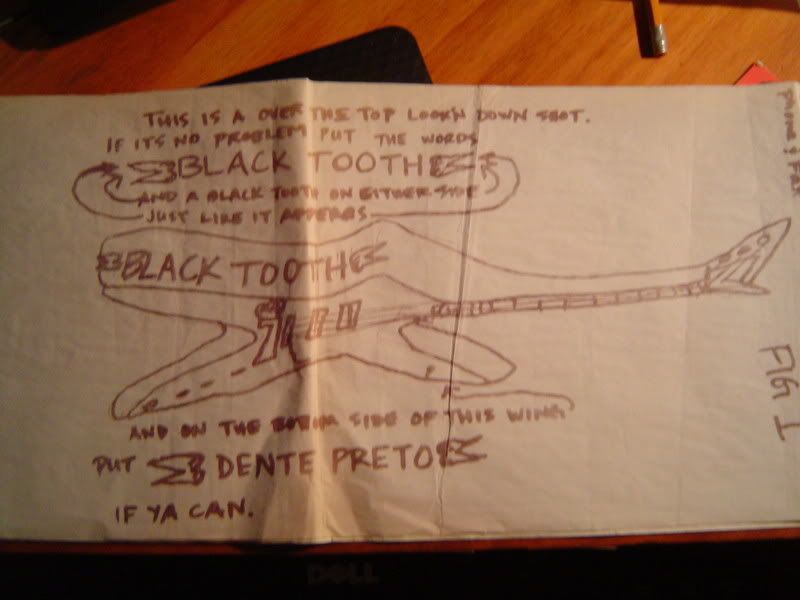 THIS IS A OVER THE TOP LOOK'N DOWN SHOT.
IF ITS NO PROBLEM PUT THE WORDS
BLACK TOOTH
AND A BLACK TOOTH ON EITHER SIDE
JUST LIKE IT APPERES
BLACK TOOTH
AND ON THE SIDE OF THIS WING
PUT DENTE PRETO
IF YA CAN.
FIG 1
PHONE & FAX
DELL